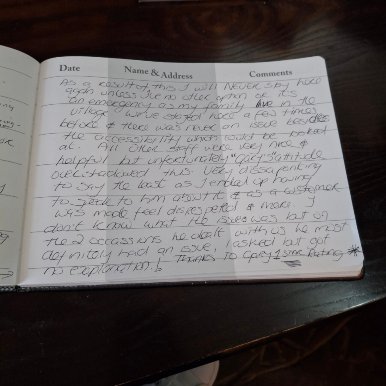 Date Name & Address Comments
As a result of this I will NEVER stay here
again unless I've no other option or it's
an emergency as my family live in the
village. We've stayed here a few times
before & there was never an issue besides
the accessibility which could be looked
at. All other staff were very nice &
helpful but unfortunately "Gary's" attitude
overshadowed this. Very disappointing
to say the least as I ended up having
to speak to him about it & as a customer
I was made feel disrespected & more. I
don't know what the issue was but on
the 2 occassions he dealt with us he most
definitely had an issue, I asked but got
no explanation! Thanks to Gary 1 star Rating *